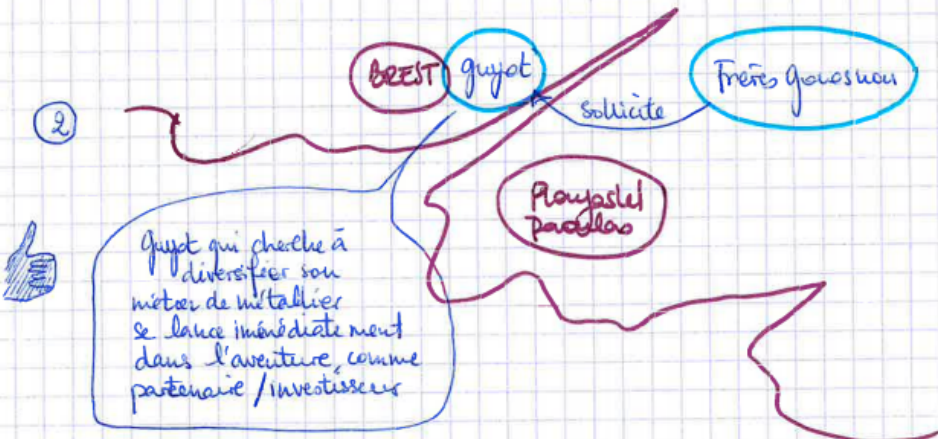 BREST
Guyot
Frères
sollicite
②
Guyot qui cherche à
diversifier son
métier de métallier
se lance immédiatement
dans l'aventure, comme
partenaire / investisseur